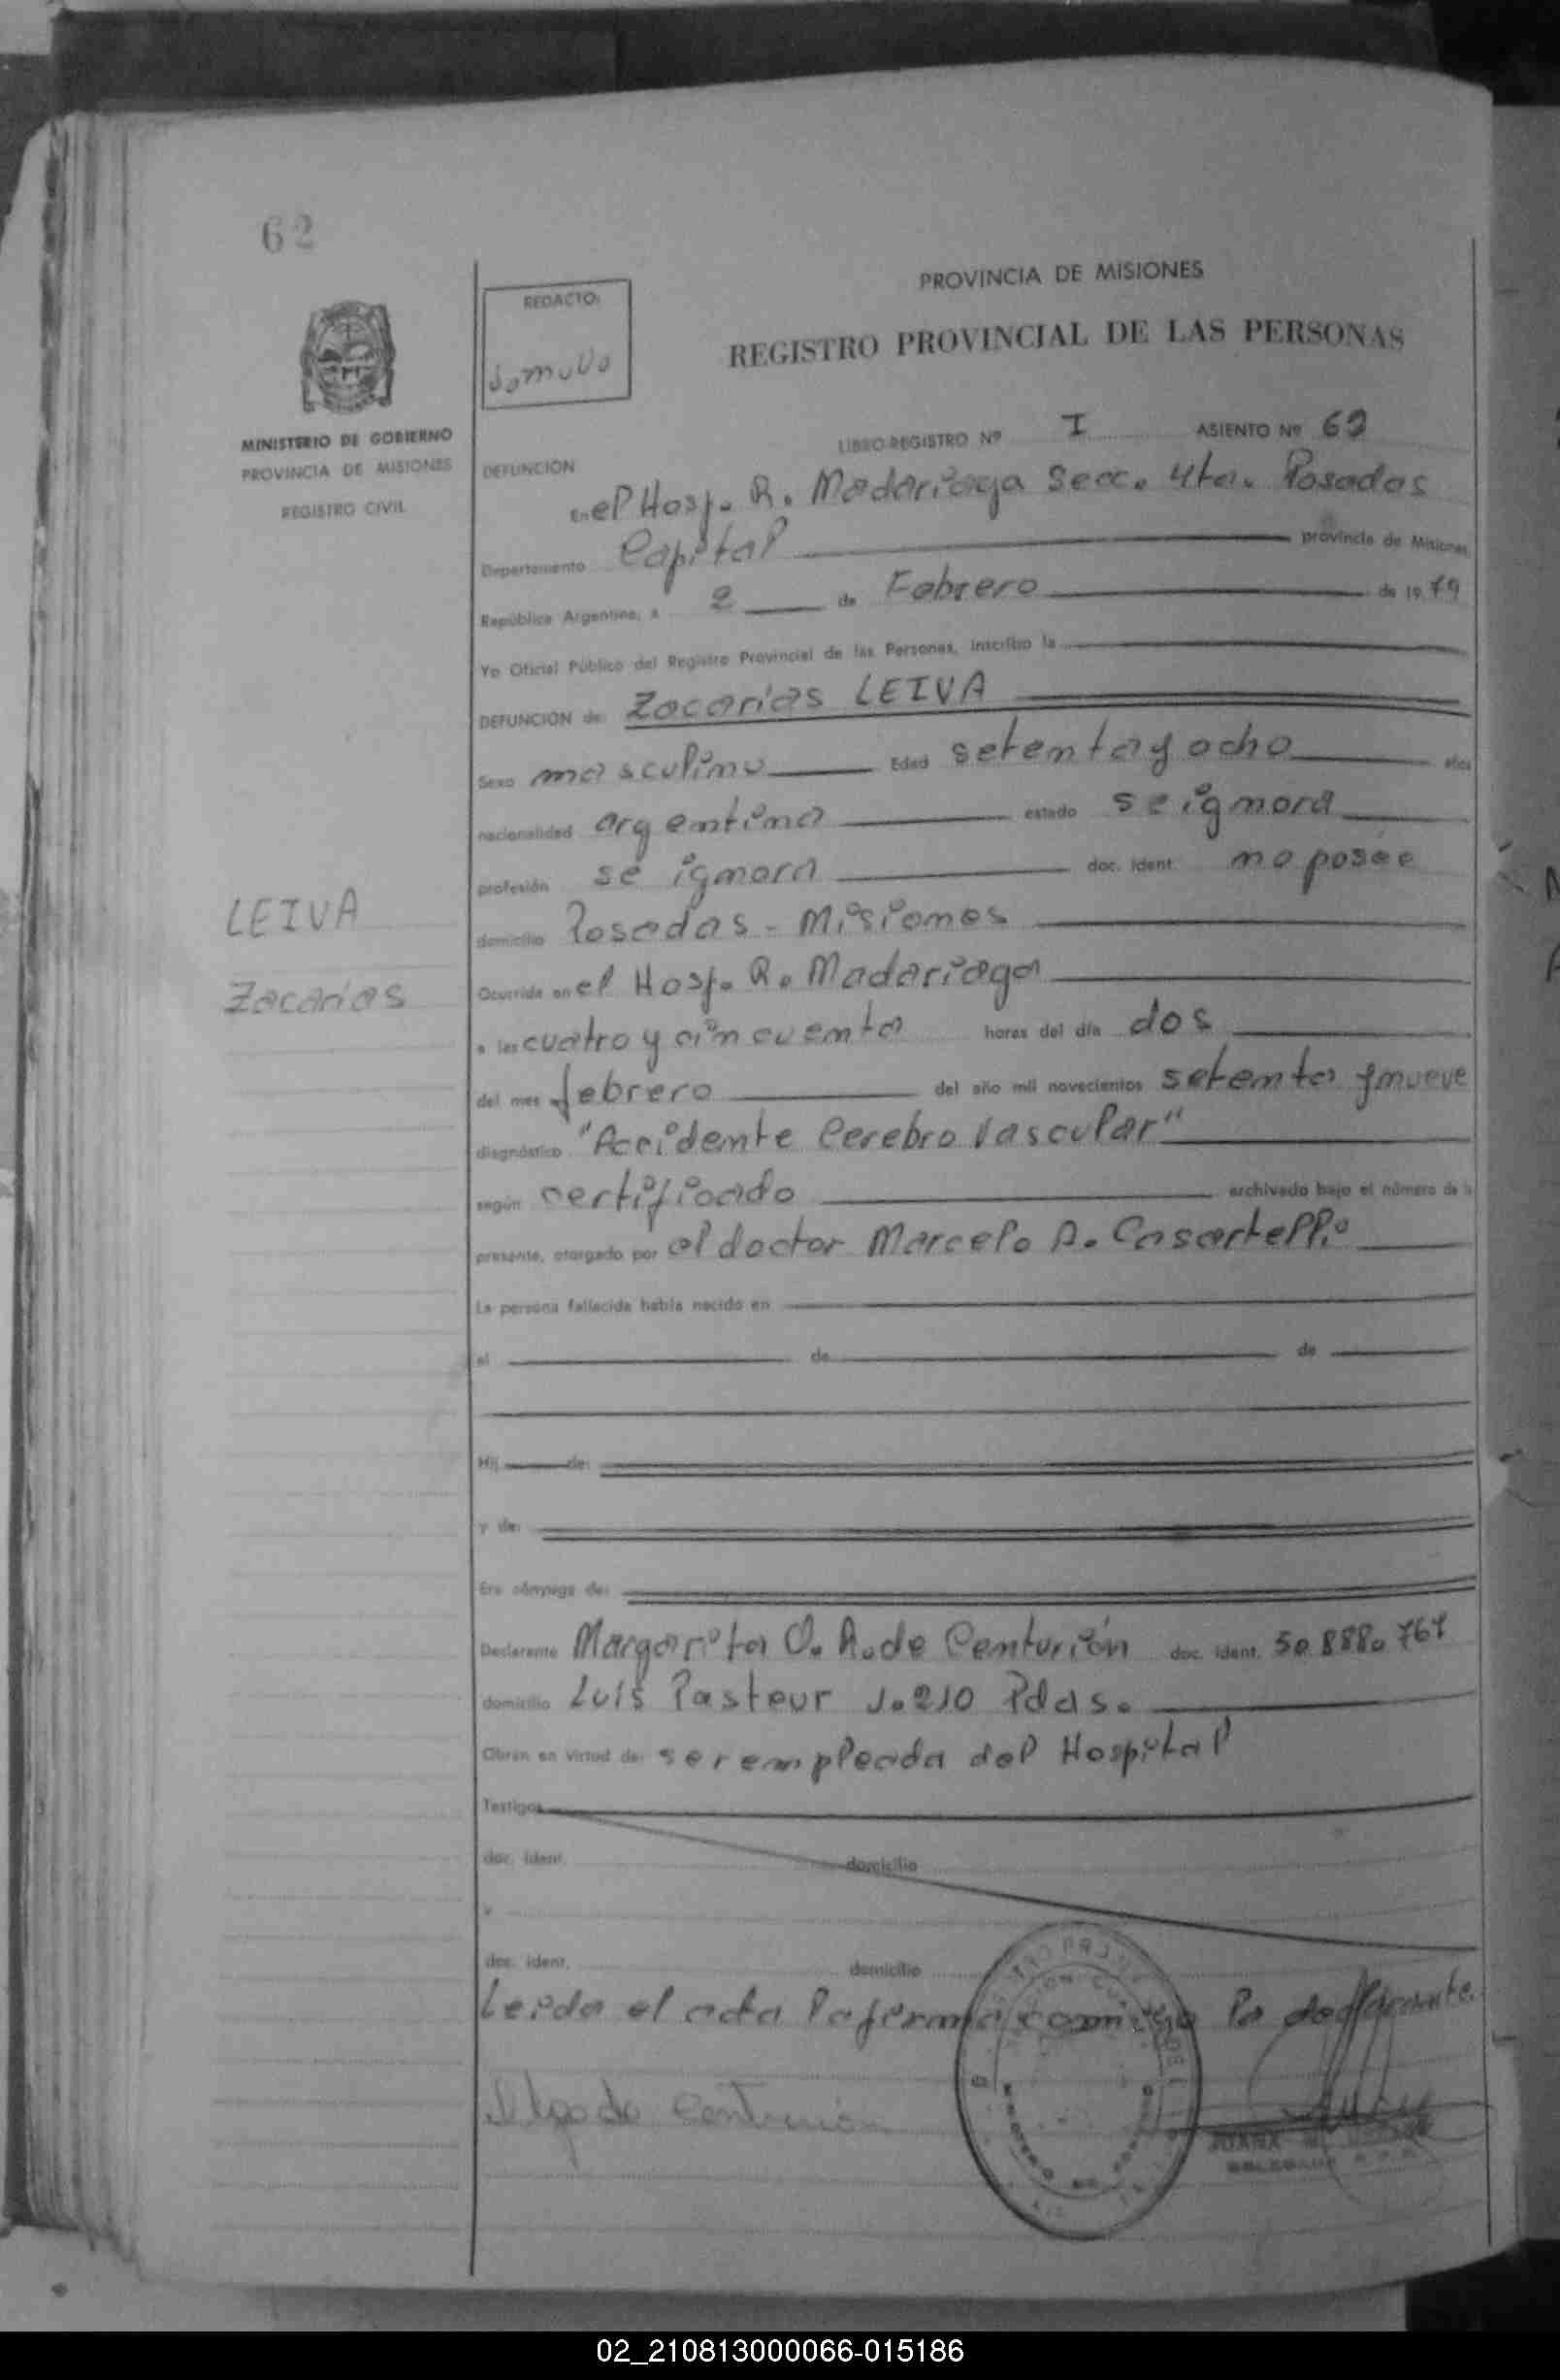 62
PROVINCIA DE MISIONES
REGISTRO PROVINCIAL DE LAS PERSONAS
REDACTO:
MINISTERIO DE GOBIERNO
PROVINCIA DE MISIONES
REGISTRO CIVIL
LIBRO-REGISTRO Nº I ASIENTO Nº 62
DEFUNCION
En el Hosp. R. Madariaga Secc. 4ta. Posadas
Departamento Capital provincia de Misiones,
República Argentina, a 2 de Febrero de 1979
Yo Oficial Público del Registro Provincial de las Personas, inscribo la
DEFUNCION de: Zacarías LEIVA
Sexo masculino Edad setenta y ocho años
nacionalidad argentina estado se ignora
profesión se ignora doc. ident. no posee
LEIVA
Zacarías
domicilio Posadas - Misiones
Ocurrida en el Hosp. R. Madariaga
a las cuatro y cincuenta horas del día dos
del mes febrero del año mil novecientos setenta y nueve
diagnóstico "Accidente Cerebro Vascular"
según certificado archivado bajo el número de la
presente, otorgado por el doctor Marcelo A. Casartelli
La persona fallecida había nacido en
el de de
Hij de:
y de:
Era cónyuge de:
Declarante Margarita O. A. de Centurión doc. ident.
domicilio Luis Pasteur 1.210 Pdas.
Obran en virtud de: ser empleada del Hospital
Testigos
doc. ident. domicilio
y
doc. ident. domicilio
Leida el acta la firma conmigo la declarante.
de Centurión
JUANA
02_210813000066-015186